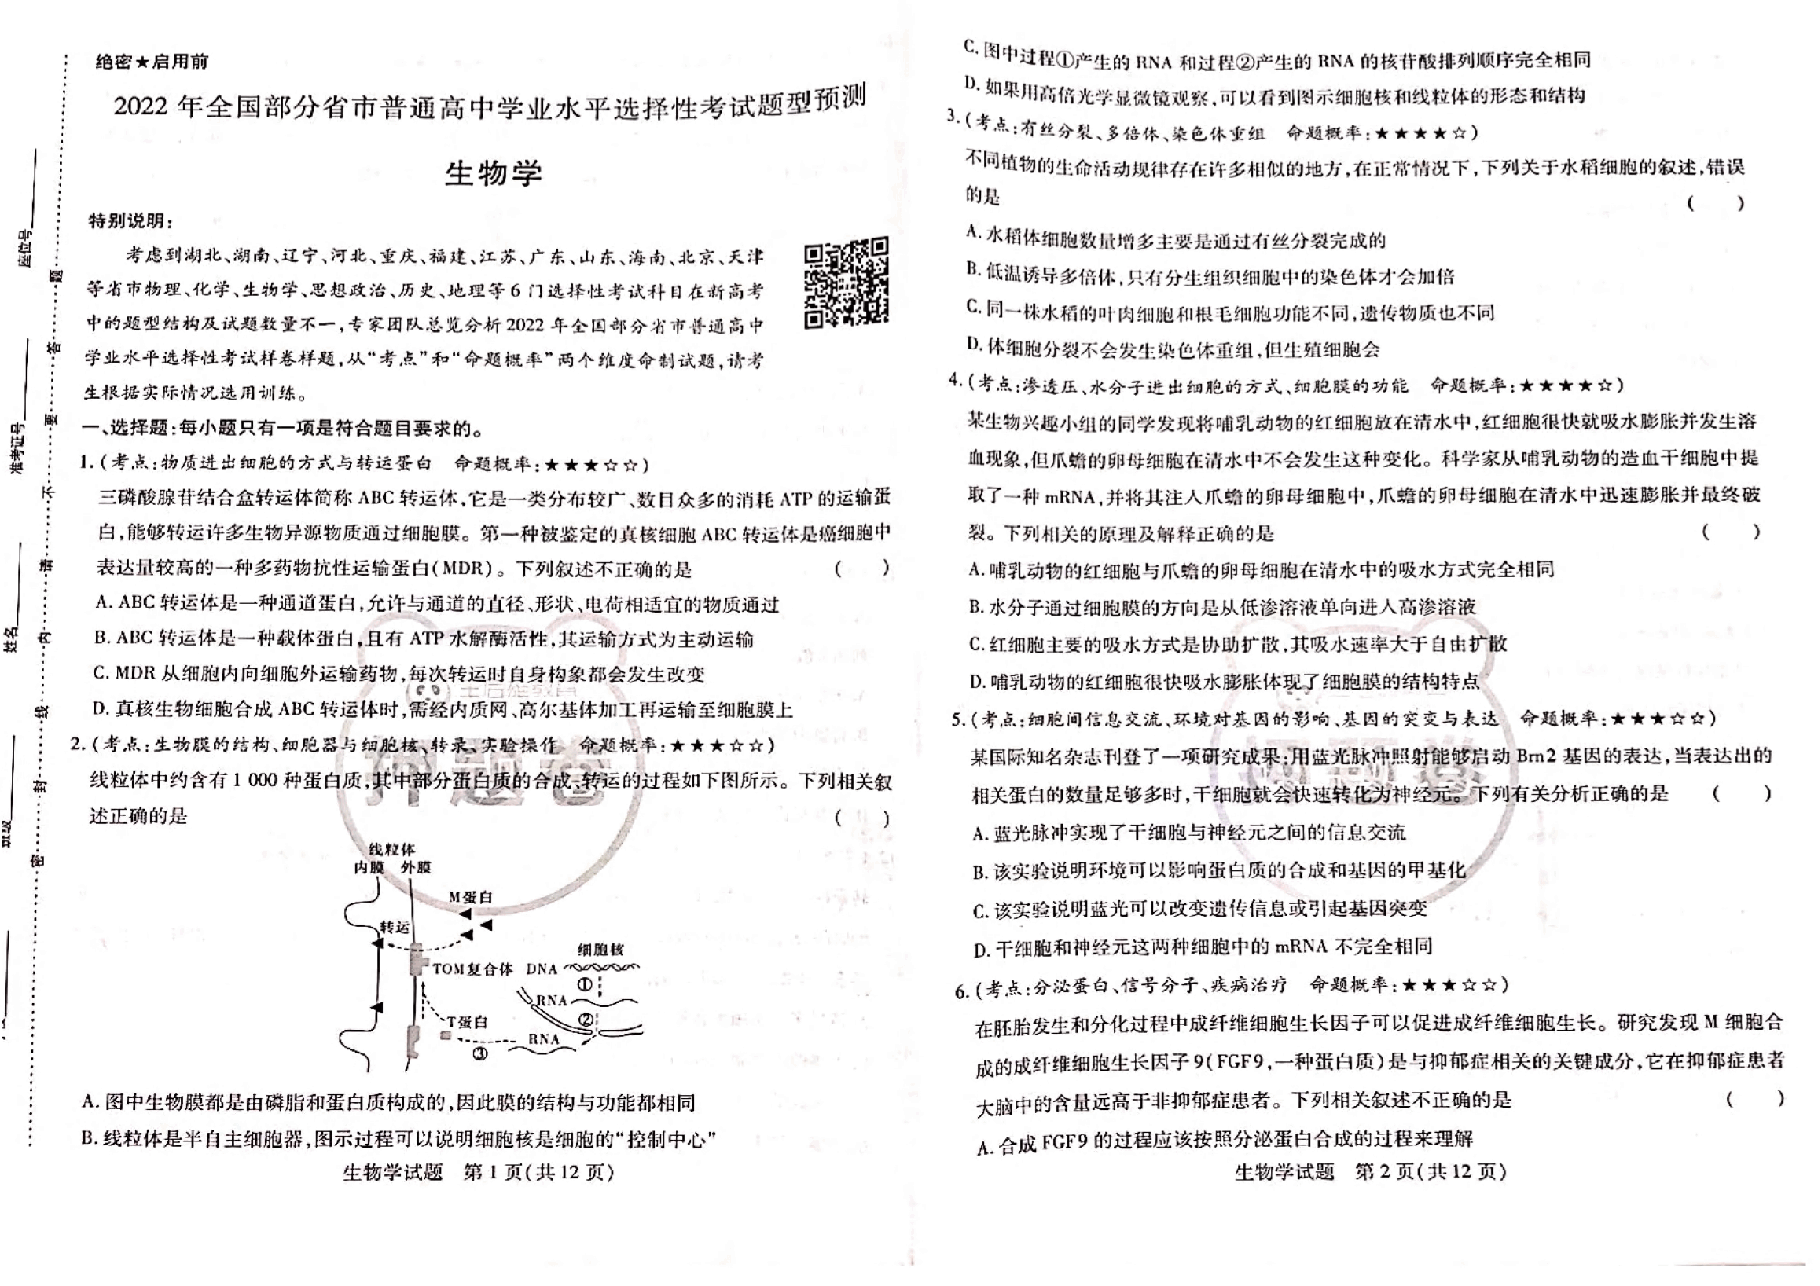 绝密★启用前
2022年全国部分省市普通高中学业水平选择性考试题型预测
生物学
特别说明:
考虑到湖北、湖南、辽宁、河北、重庆、福建、江苏、广东、山东、海南、北京、天津
等省市物理、化学、生物学、思想政治、历史、地理等6门选择性考试科目在新高考
中的题型结构及试题数量不一,专家团队总览分析2022年全国部分省市普通高中
学业水平选择性考试样卷样题,从“考点”和“命题概率”两个维度命制试题,请考
生根据实际情况选用训练。
一、选择题:每小题只有一项是符合题目要求的。
1.(考点:物质进出细胞的方式与转运蛋白 命题概率:★★★☆☆)
三磷酸腺苷结合盒转运体简称ABC转运体,它是一类分布较广、数目众多的消耗ATP的运输蛋
白,能够转运许多生物异源物质通过细胞膜。第一种被鉴定的真核细胞ABC转运体是癌细胞中
表达量较高的一种多药物抗性运输蛋白(MDR)。下列叙述不正确的是 ( )
A. ABC转运体是一种通道蛋白,允许与通道的直径、形状、电荷相适宜的物质通过
B. ABC转运体是一种载体蛋白,且有ATP水解酶活性,其运输方式为主动运输
C. MDR从细胞内向细胞外运输药物,每次转运时自身构象都会发生改变
D. 真核生物细胞合成ABC转运体时,需经内质网、高尔基体加工再运输至细胞膜上
2.(考点:生物膜的结构、细胞器与细胞核、转录、实验操作 命题概率:★★★☆☆)
线粒体中约含有1 000种蛋白质,其中部分蛋白质的合成、转运的过程如下图所示。下列相关叙
述正确的是 ( )
线粒体
内膜 外膜
M蛋白
转运
细胞核
TOM复合体 DNA
①
RNA
②
T蛋白
RNA
③
A. 图中生物膜都是由磷脂和蛋白质构成的,因此膜的结构与功能都相同
B. 线粒体是半自主细胞器,图示过程可以说明细胞核是细胞的“控制中心”
生物学试题 第1页(共12页)
C. 图中过程①产生的RNA和过程②产生的RNA的核苷酸排列顺序完全相同
D. 如果用高倍光学显微镜观察,可以看到图示细胞核和线粒体的形态和结构
3.(考点:有丝分裂、多倍体、染色体重组 命题概率:★★★★☆)
不同植物的生命活动规律存在许多相似的地方,在正常情况下,下列关于水稻细胞的叙述,错误
的是 ( )
A. 水稻体细胞数量增多主要是通过有丝分裂完成的
B. 低温诱导多倍体,只有分生组织细胞中的染色体才会加倍
C. 同一株水稻的叶肉细胞和根毛细胞功能不同,遗传物质也不同
D. 体细胞分裂不会发生染色体重组,但生殖细胞会
4.(考点:渗透压、水分子进出细胞的方式、细胞膜的功能 命题概率:★★★★☆)
某生物兴趣小组的同学发现将哺乳动物的红细胞放在清水中,红细胞很快就吸水膨胀并发生溶
血现象,但爪蟾的卵母细胞在清水中不会发生这种变化。科学家从哺乳动物的造血干细胞中提
取了一种mRNA,并将其注入爪蟾的卵母细胞中,爪蟾的卵母细胞在清水中迅速膨胀并最终破
裂。下列相关的原理及解释正确的是 ( )
A. 哺乳动物的红细胞与爪蟾的卵母细胞在清水中的吸水方式完全相同
B. 水分子通过细胞膜的方向是从低渗溶液单向进入高渗溶液
C. 红细胞主要的吸水方式是协助扩散,其吸水速率大于自由扩散
D. 哺乳动物的红细胞很快吸水膨胀体现了细胞膜的结构特点
5.(考点:细胞间信息交流、环境对基因的影响、基因的突变与表达 命题概率:★★★☆☆)
某国际知名杂志刊登了一项研究成果:用蓝光脉冲照射能够启动Brn2基因的表达,当表达出的
相关蛋白的数量足够多时,干细胞就会快速转化为神经元。下列有关分析正确的是 ( )
A. 蓝光脉冲实现了干细胞与神经元之间的信息交流
B. 该实验说明环境可以影响蛋白质的合成和基因的甲基化
C. 该实验说明蓝光可以改变遗传信息或引起基因突变
D. 干细胞和神经元这两种细胞中的mRNA不完全相同
6.(考点:分泌蛋白、信号分子、疾病治疗 命题概率:★★★☆☆)
在胚胎发生和分化过程中成纤维细胞生长因子可以促进成纤维细胞生长。研究发现M细胞合
成的成纤维细胞生长因子9(FGF9,一种蛋白质)是与抑郁症相关的关键成分,它在抑郁症患者
大脑中的含量远高于非抑郁症患者。下列相关叙述不正确的是 ( )
A. 合成FGF9的过程应该按照分泌蛋白合成的过程来理解
生物学试题 第2页(共12页)
座位号
准考证号
姓名
密 封 线 内 请 不 要 答 题
押题卷